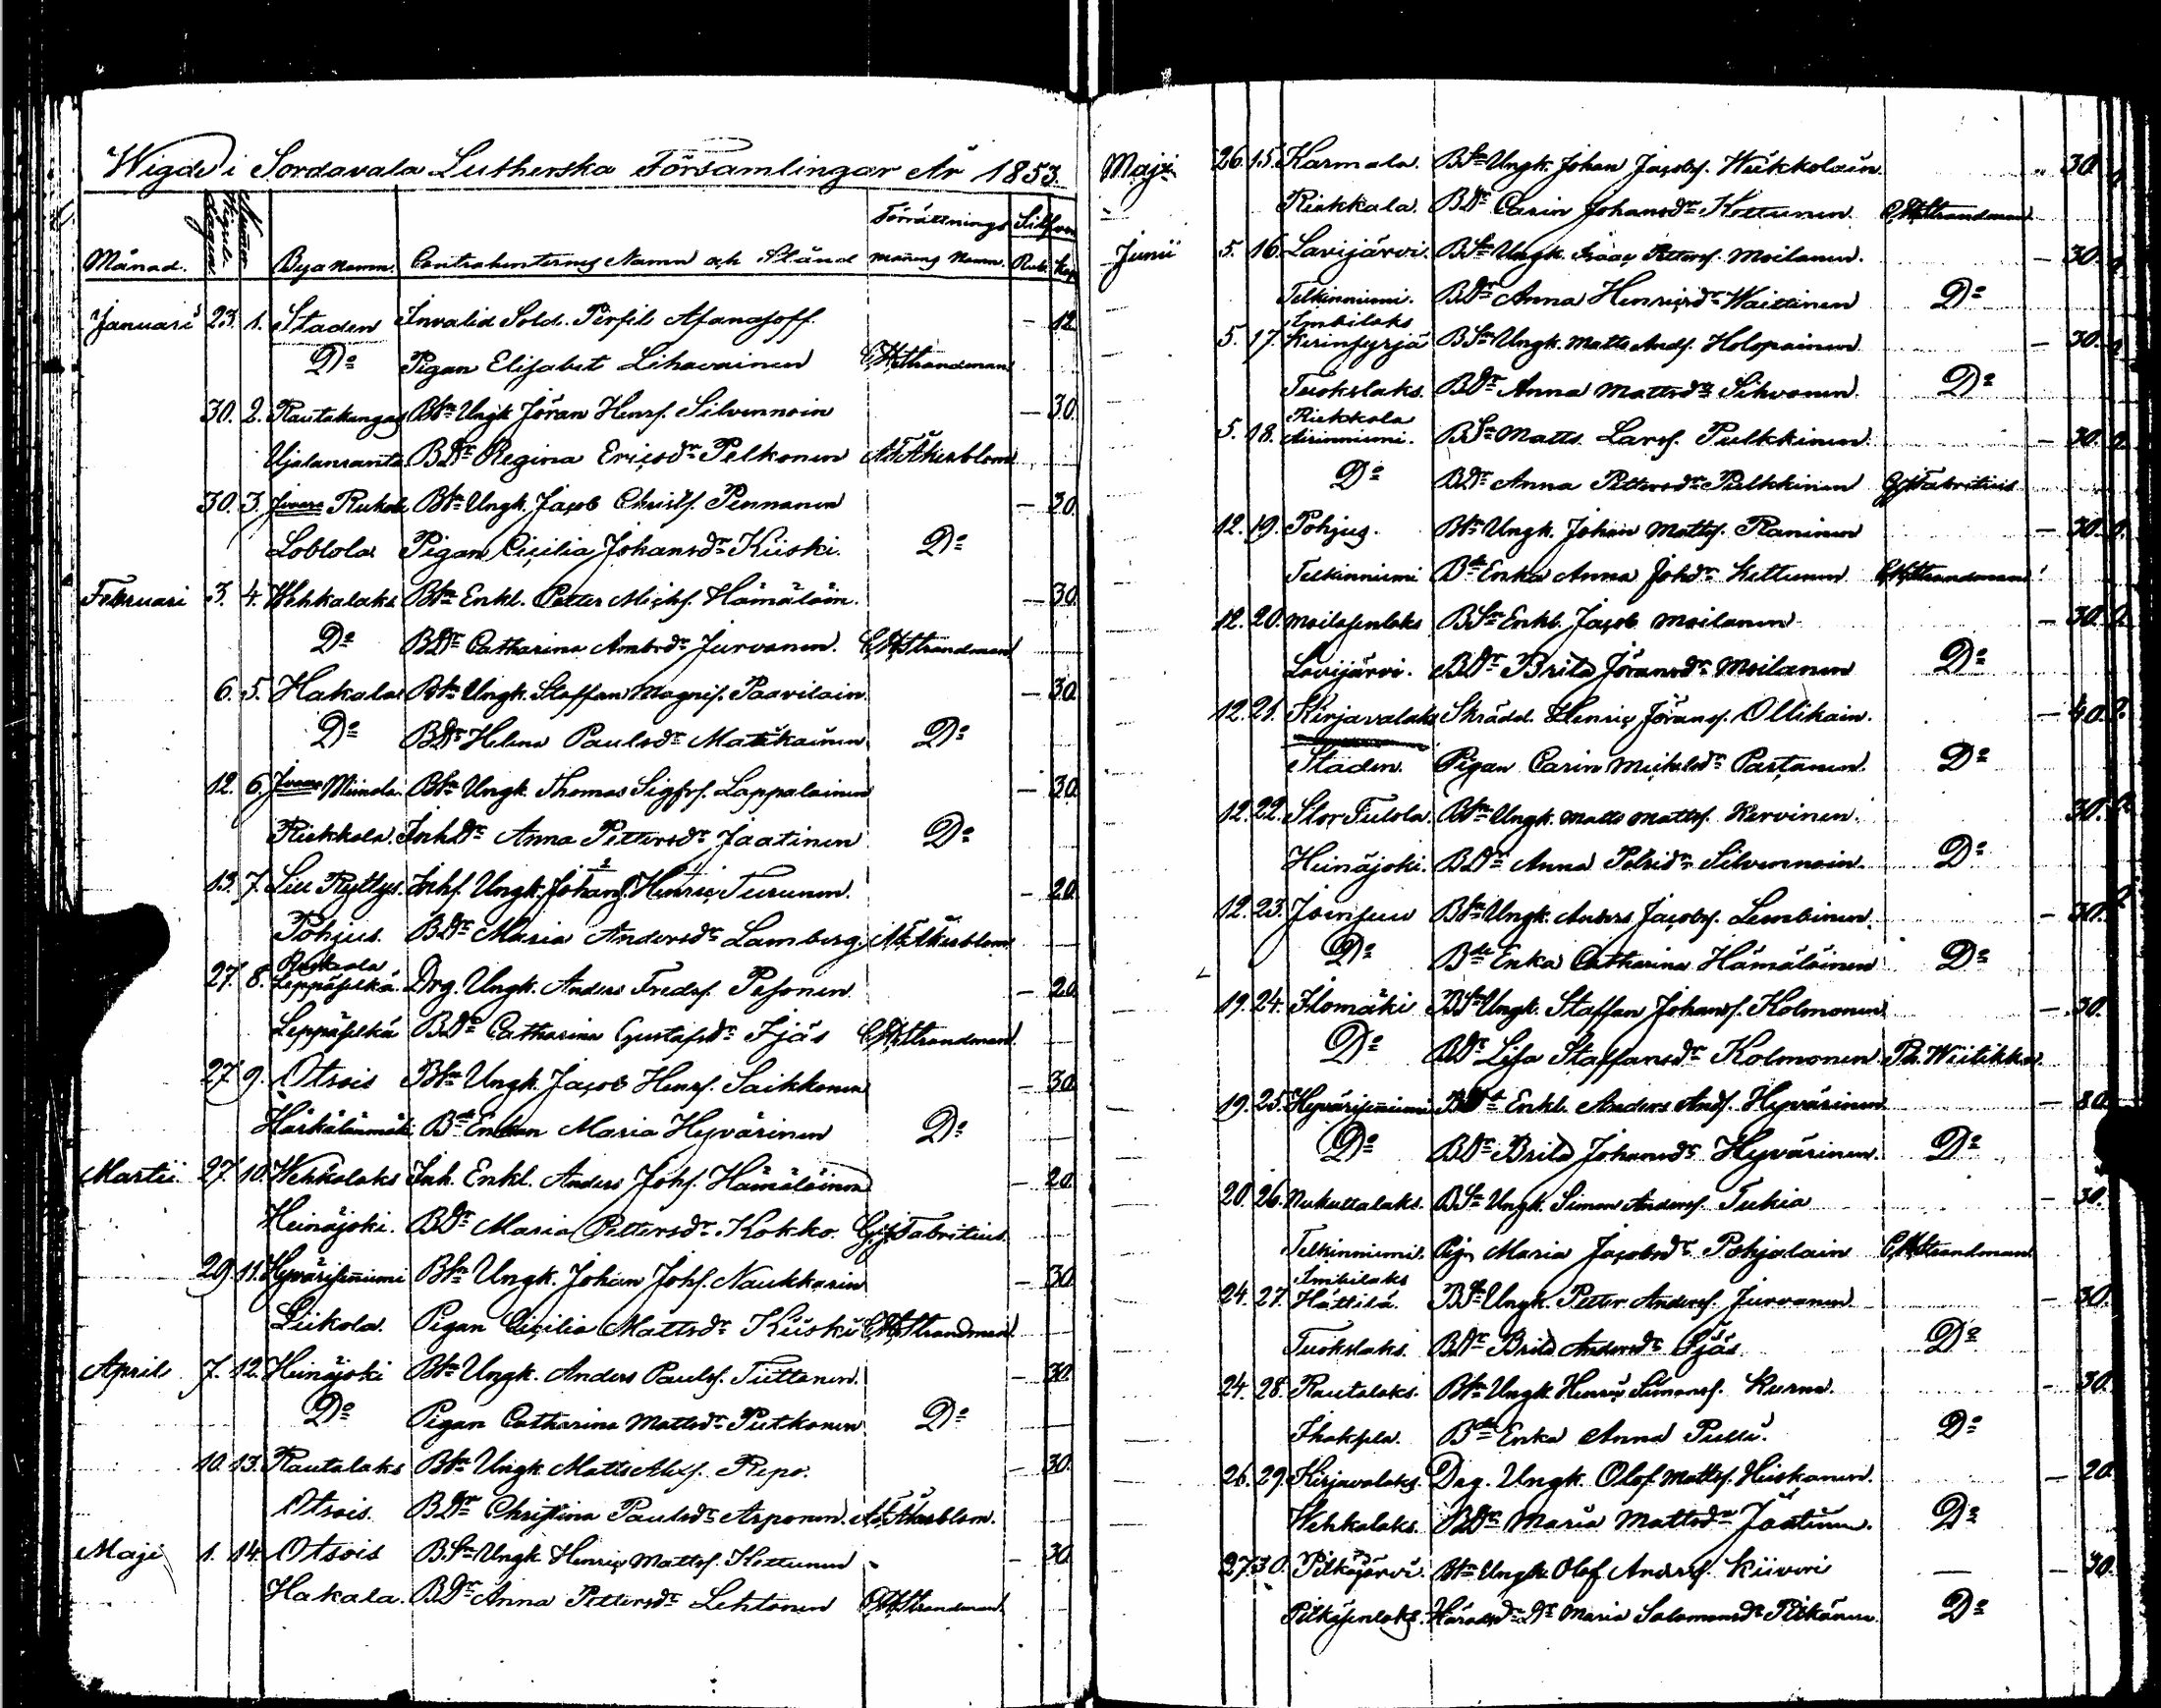 Wigde i Sordavala Lutherska Församlingar År 1853.
Månad. Wigsel-dagen Numer Byanamn. Contrahenternes Namn och Stånd Förrättnings mannens Namn. Silfver Rub. Kop.
Januari 23. 1. Staden Invalid Sold. Perfil Afanasoff. — 12.
Do Pigan Elisabet Lihavainen C.H. Strandman
30. 2. Rautakangas BSn Ungk. Jöran Henrs. Silvennoin — 30.
Ujalanranta BDr Regina Ericsdr Pelkonen A.F. Åkerblom
30. 3. Jmare Ruskola BSn Ungk. Jacob Christs. Pennanen — 30.
Loblola Pigan Cicilia Johansdr Kiiski. Do
Februari 3. 4. Wehkalaks BSn Enkl. Petter Michs. Hämäläin. — 30.
Do BDr Catharina Ambrdr Jurvanen. C.H. Strandman
6. 5. Hakala BSn Ungk. Staffan Magnis. Paavilain. — 30.
Do BDr Helena Paulsdr Matikainen Do
12. 6. Jmare Miinola BSn Ungk. Thomas Sigfrs. Lappalainen — 30.
Riekkala. Inh.Dr Anna Pettersdr Jaatinen Do
13. 7. Lill Ryttys. Inhs. Ungk. Johan Henric Turunen. — 20.
Pohjus. BDr Maria Andersdr Lamberg. A.F. Åkerblom
27. 8. Ruskola Leppäselkä. Drg. Ungk. Anders Fredrs. Pesonen — 20.
Leppäselkä BDr Catharina Gustafsdr Ijäs C.H. Strandman.
27. 9. Otsois BSn Ungk. Jacob Henrs. Saikkonen — 30.
Härkälänmäki BdeEnkan Maria Hyvärinen Do
Martii 27. 10. Wehkalaks Inh. Enkl. Anders Johs. Hämäläinen — 20.
Heinäjoki. BDr Maria Pettersdr Kokko. G.J. Fabritius.
29. 11. Hyvärisenniemi BSn Ungk. Johan Johs. Naukkarin — 30.
Liikola. Pigan Cicilia Mattsdr Kiiski C.H. Strandman.
April 7. 12. Heinäjoki BSn Ungk. Anders Pauls. Tiittanen. — 30.
Do Pigan Catharina Mattsdr Putkonen Do
10. 13. Rautalaks BSn Ungk. Matts Alexs. Repo. — 30.
Otsois. BDr Christina Paulsdr Asponen. A.F. Åkerblom.
Maji 1. 14. Otsois BSn Ungk Henric Mattss. Kettunen — 30.
Hakala. BDr Anna Pettersdr Lehtonen C.H. Strandman.
Maji 26. 15. Karmala. BSn Ungk. Johan Jacobs. Wiikkolain — 30.
Riekkala. BDr Carin Johansdr Kettunen C.H. Strandman
Junii 5. 16. Lavijärvi. BSn Ungk. Isaac Petters. Moilanen. — 30.
Telkinniemi. BDr Anna Henricsdr Waittinen Do
5. 17. Imbilaks Kirinsyrjä BSn Ungk. Matts Ands. Holopainen — 30.
Tuokslaks. BDr Anna Mattsdr Sihvonen. Do
5. 18. Riekkola Airinniemi. BSn Matts Lars. Pulkkinen — 30.
Do BDr Anna Pettersdr Pulkkinen G.J. Fabritius
12. 19. Pohjus. BSn Ungk. Johan Mattss. Raninen — 30.
Telkinniemi Bde Enka Anna Johdr Kettunen C.H. Strandman
12. 20. Moilasenlaks BSn Enkl. Jacob Moilanen — 30.
Lavijärvi. BDr Brita Jöransdr Moilanen Do
12. 21. Kirjavalaks Skrädd. Henric Jörans. Ollikain. — 40.
Staden. Pigan Carin Michelsdr Partanen. Do
12. 22. Stor Tulola. BSn Ungk. Matts Mattss. Kervinen. 30.
Heinäjoki. BDr Anna Petrisdr Silvennoin. Do
12. 23. Joensuu BSn Ungk. Anders Jacobs. Lembinen. — 30.
Do Bde Enka Catharina Hämäläinen Do
19. 24. Ilomäki BSn Ungk. Staffan Johans. Kolmonen — 30.
Do BDr Lisa Staffansdr Kolmonen. Pr. Wiitikka.
19. 25. Hyvärisenniemi Enkl. Anders Ands. Hyvärinen — 30.
Do BDr Brita Johansdr Hyvärinen. Do
20. 26. Nukuttalaks. BSn Ungk. Simon Anders. Tukia — 30.
Telkinniemi. Pig. Maria Jacobsdr Pohjolain C.H. Strandman
24. 27. Imbilaks Hättilä. BSn Ungk. Petter Anders. Jurvanen. — 30.
Tuokslaks. BDr Brita Andersdr Ijäs Do
24. 28. Rautalaks. BSn Ungk. Henric Simons. Kurna. — 30.
Ihaksela. Bde Enka Anna Do
26. 29. Kirjavalaks. Drg. Ungk. Olof Mattss. Hiiskanen. — 20.
Wehkalaks. BDr Maria Mattsdr Jäätinen. Do
27. 30. Pitkäjärvi. BSn Ungk. Olof Anders. Kiiveri — 30.
Pitkäsenlaks. Häradsd. Dr Maria Salomonsdr Pitkänen. Do